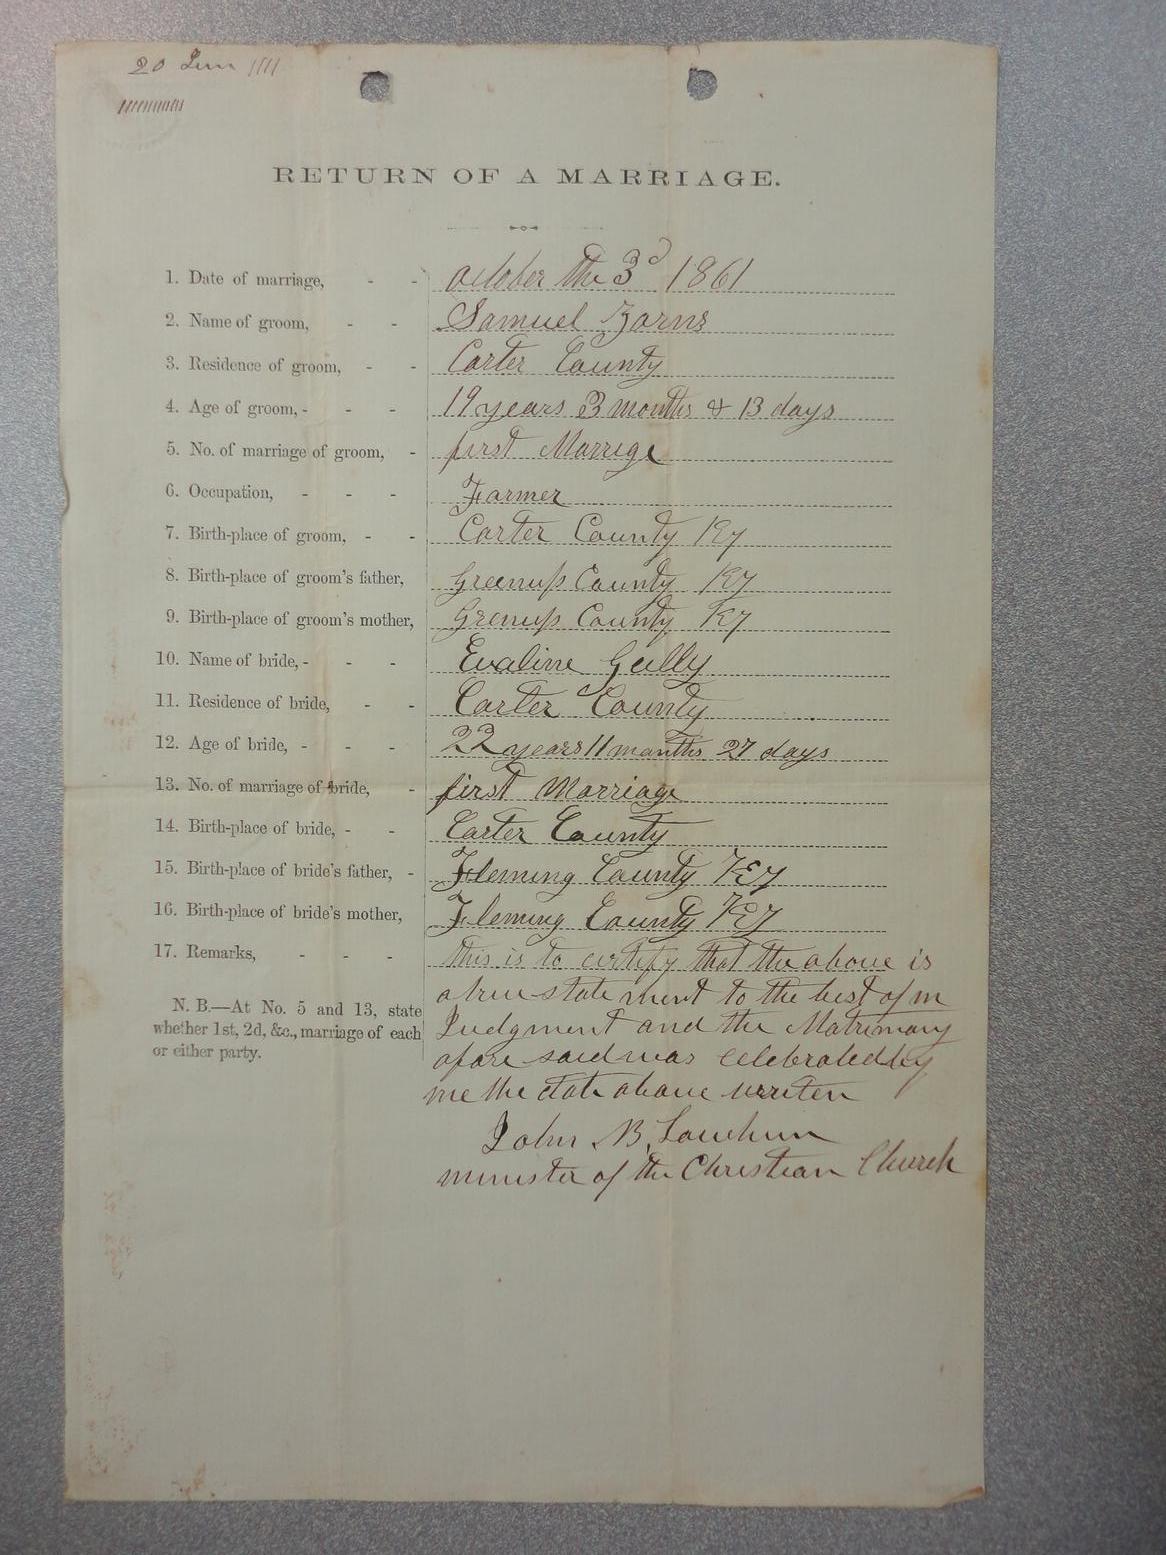 20
RETURN OF A MARRIAGE.
1. Date of marriage, - - october the 3d 1861
2. Name of groom, - - Samuel Zorns
3. Residence of groom, - - Carter County
4. Age of groom, - - - 19 years 3 months & 13 days
5. No. of marriage of groom, - first Marrige
6. Occupation, - - - Farmer
7. Birth-place of groom, - - Carter County Ky
8. Birth-place of groom's father, Greenup County Ky
9. Birth-place of groom's mother, Grenup County Ky
10. Name of bride, - - - Evaline Gully
11. Residence of bride, - - Carter County
12. Age of bride, - - - 22 years 11 months 27 days
13. No. of marriage of bride, - first Marriage
14. Birth-place of bride, - - Carter County
15. Birth-place of bride's father, - Fleming County Ky
16. Birth-place of bride's mother, Fleming County Ky
17. Remarks, - - - this is to certify that the above is
a true statement to the best of m
Judgment and the Matrimony
afore said was celebrated by
me the date above written
John B.
minister of the Christian Church
N. B.—At No. 5 and 13, state
whether 1st, 2d, &c., marriage of each
or either party.